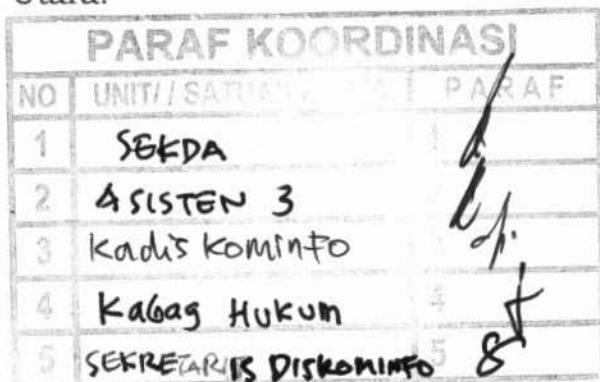 Utara.
PARAF KOORDINASI
NO UNIT/ / SATUAN KERJA PARAF
1 SEKDA 1
2 ASISTEN 3
3 Kadis Kominfo
4 Kabag HUKUM 4
5 SEKRETARIS DISKOMINFO 5